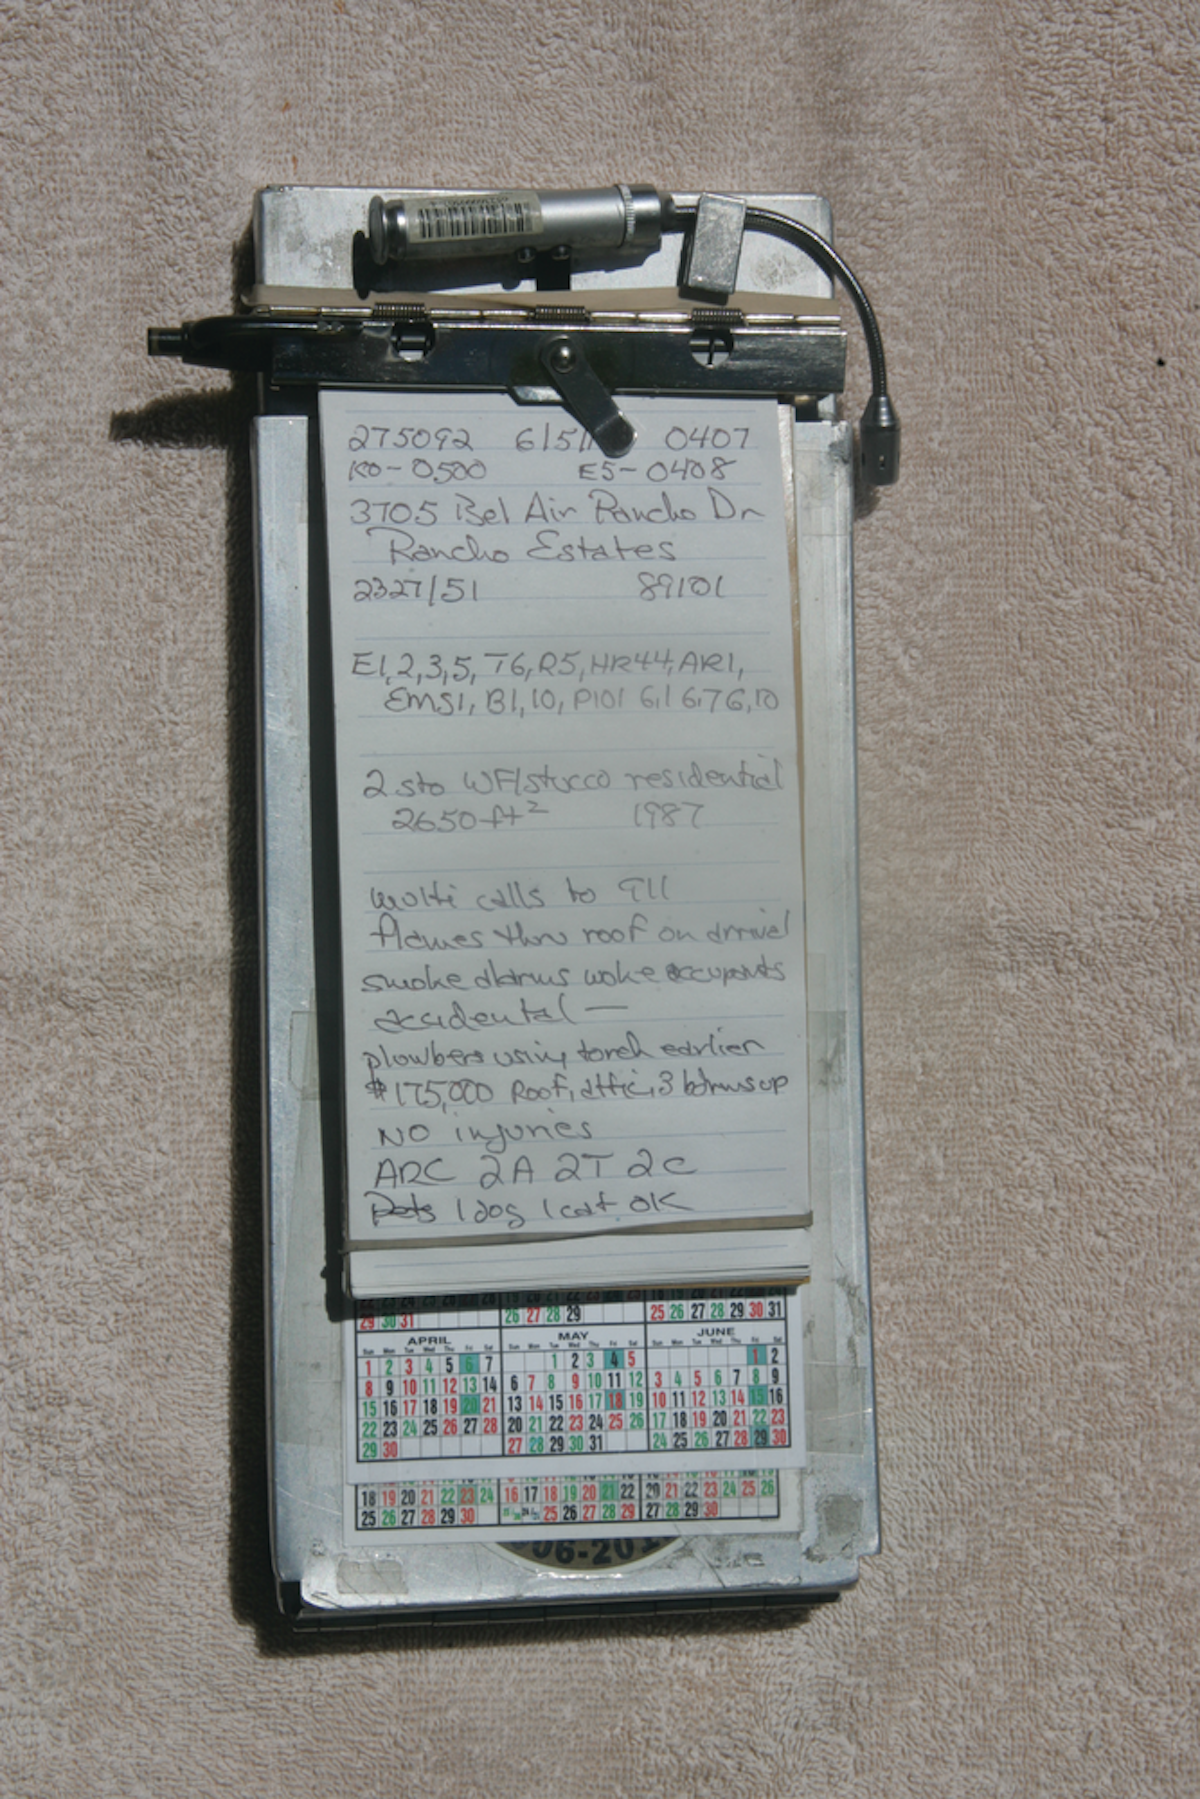 275092 6/5/ 0407
KO-0500 E5-0408
3705 Bel Air Rancho Dr
Rancho Estates
2327/51 89101
E1,2,3,5, T6, R5, HR44, AR1,
EMS1, B1, 10, P101 6,1 6,76,10
2 sto WF/stucco residential
2650 ft² 1987
multi calls to 911
flames thru roof on arrival
smoke alarms woke occupants
accidental —
plumbers using torch earlier
$175,000 Roof, attic, 3 bdrms up
NO injuries
ARC 2A 2T 2C
Pets 1 dog 1 cat OK
29 30 31 26 27 28 29 25 26 27 28 29 30 31
APRIL MAY JUNE
Sun Mon Tue Wed Thu Fri Sat Sun Mon Tue Wed Thu Fri Sat Sun Mon Tue Wed Thu Fri Sat
1 2 3 4 5 6 7 1 2 3 4 5 1 2
8 9 10 11 12 13 14 6 7 8 9 10 11 12 3 4 5 6 7 8 9
15 16 17 18 19 20 21 13 14 15 16 17 18 19 10 11 12 13 14 15 16
22 23 24 25 26 27 28 20 21 22 23 24 25 26 17 18 19 20 21 22 23
29 30 27 28 29 30 31 24 25 26 27 28 29 30
18 19 20 21 22 23 24 16 17 18 19 20 21 22 20 21 22 23 24 25 26
25 26 27 28 29 30 25 26 27 28 29 27 28 29 30
06-201